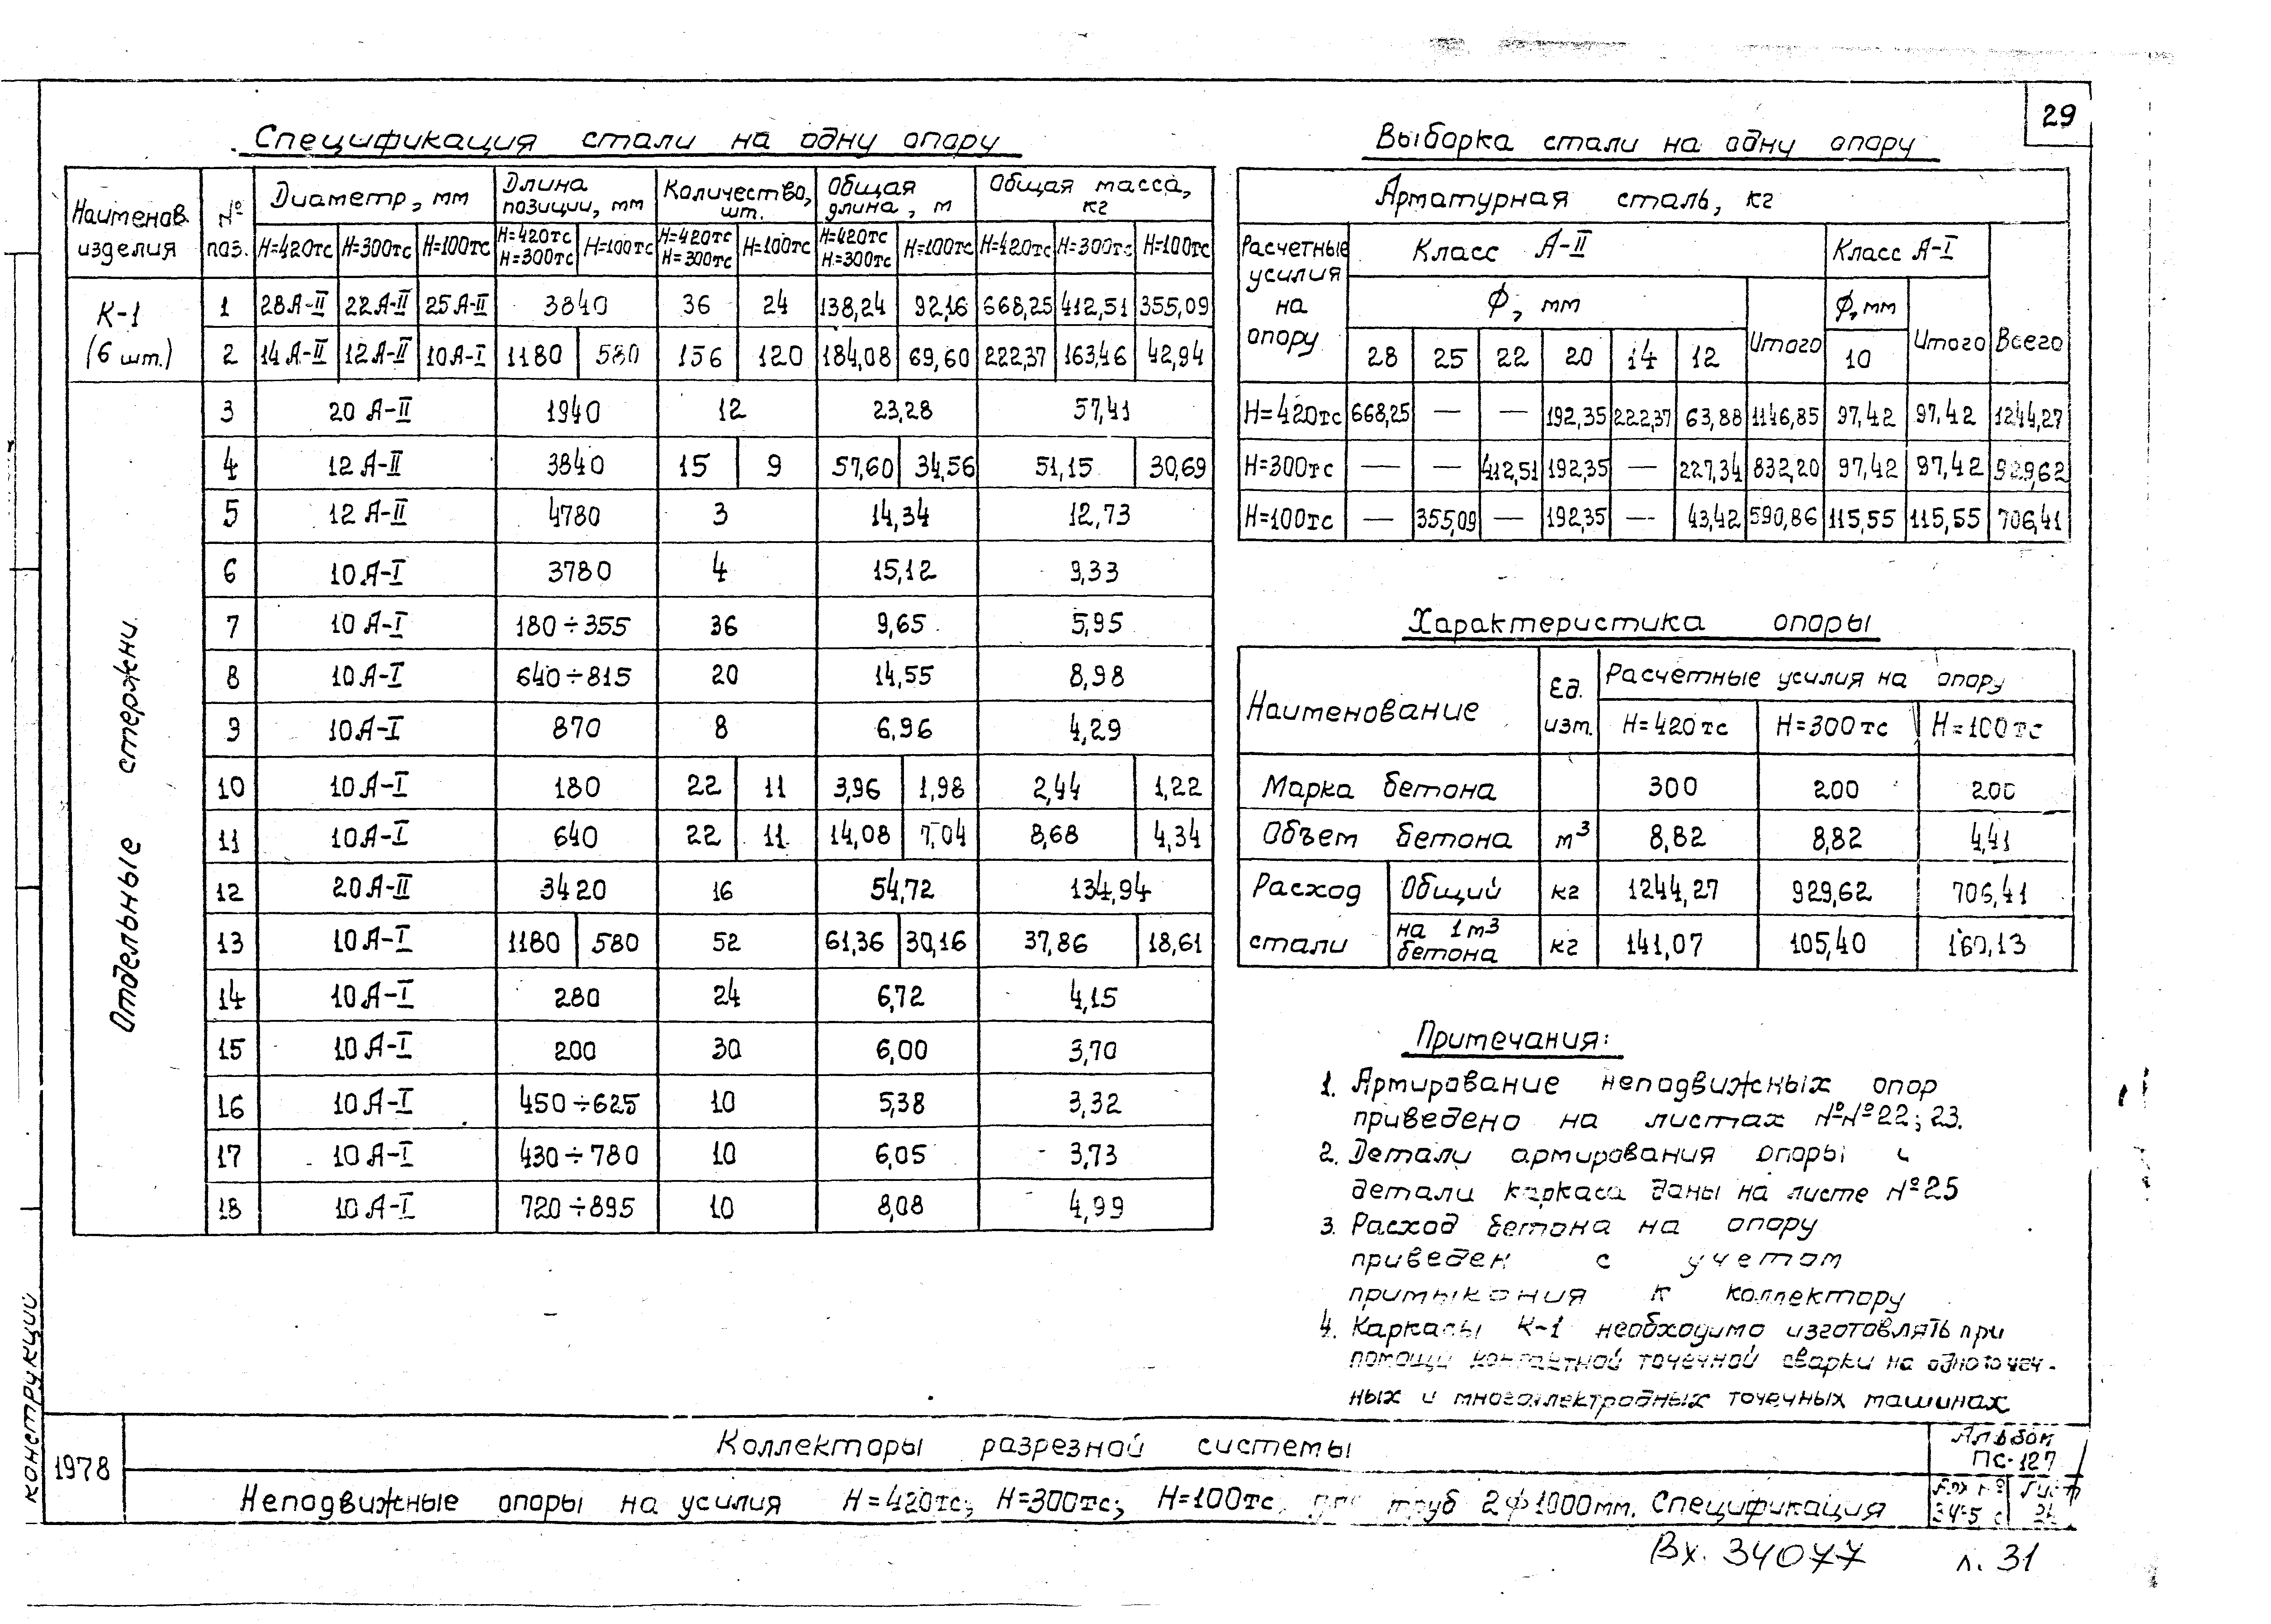 29
Спецификация стали на одну опору
Наименов. изделия | № поз. | Диаметр, мм | Длина позиции, мм | Количество, шт. | Общая длина, м | Общая масса, кг
H=420тс | H=300тс | H=100тс | H=420тс H=300тс | H=100тс | H=420тс H=300тс | H=100тс | H=420тс H=300тс | H=100тс | H=420тс | H=300тс | H=100тс
К-1 (6 шт.) | 1 | 28А-II | 22А-II | 25А-II | 3840 | 36 | 24 | 138,24 | 92,16 | 668,25 | 412,51 | 355,09
2 | 14А-II | 12А-II | 10А-I | 1180 | 580 | 156 | 120 | 184,08 | 69,60 | 222,37 | 163,46 | 42,94
Отдельные стержни.
3 | 20 А-II | 1940 | 12 | 23,28 | 57,41
4 | 12 А-II | 3840 | 15 | 9 | 57,60 | 34,56 | 51,15 | 30,69
5 | 12 А-II | 4780 | 3 | 14,34 | 12,73
6 | 10 А-I | 3780 | 4 | 15,12 | 9,33
7 | 10 А-I | 180÷355 | 36 | 9,65 | 5,95
8 | 10 А-I | 640÷815 | 20 | 14,55 | 8,98
9 | 10 А-I | 870 | 8 | 6,96 | 4,29
10 | 10 А-I | 180 | 22 | 11 | 3,96 | 1,98 | 2,44 | 1,22
11 | 10 А-I | 640 | 22 | 11 | 14,08 | 7,04 | 8,68 | 4,34
12 | 20 А-II | 3420 | 16 | 54,72 | 134,94
13 | 10 А-I | 1180 | 580 | 52 | 61,36 | 30,16 | 37,86 | 18,61
14 | 10 А-I | 280 | 24 | 6,72 | 4,15
15 | 10 А-I | 200 | 30 | 6,00 | 3,70
16 | 10 А-I | 450÷625 | 10 | 5,38 | 3,32
17 | 10 А-I | 430÷780 | 10 | 6,05 | 3,73
18 | 10 А-I | 720÷895 | 10 | 8,08 | 4,99
Выборка стали на одну опору
Арматурная сталь, кг
Расчетные усилия на опору | Класс А-II | Класс А-I | Всего
Ф, мм | Итого | Ф, мм | Итого
28 | 25 | 22 | 20 | 14 | 12 | 10
H=420тс | 668,25 | — | — | 192,35 | 222,37 | 63,88 | 1146,85 | 97,42 | 97,42 | 1244,27
H=300тс | — | — | 412,51 | 192,35 | — | 227,34 | 832,20 | 97,42 | 97,42 | 929,62
H=100тс | — | 355,09 | — | 192,35 | — | 43,42 | 590,86 | 115,55 | 115,55 | 706,41
Характеристика опоры
Наименование | Ед. изм. | Расчетные усилия на опору
H=420тс | H=300тс | H=100тс
Марка бетона | 300 | 200 | 200
Объем бетона | м³ | 8,82 | 8,82 | 4,41
Расход стали | Общий | кг | 1244,27 | 929,62 | 706,41
на 1м³ бетона | кг | 141,07 | 105,40 | 160,13
Примечания:
1. Армирование неподвижных опор
приведено на листах №№22; 23.
2. Детали армирования опоры и
детали каркаса даны на листе №25
3. Расход бетона на опору
приведен с учетом
примыкания к коллектору
4. Каркасы К-1 необходимо изготовлять при
помощи контактной точечной сварки на одноточеч-
ных и многоэлектродных точечных машинах
конструкций
1978
Коллекторы разрезной системы
Неподвижные опоры на усилия H=420тс; H=300тс; H=100тс для труб 2ф1000мм. Спецификация
Альбом
ПС-127
Лист
Вх. 34077 л. 31